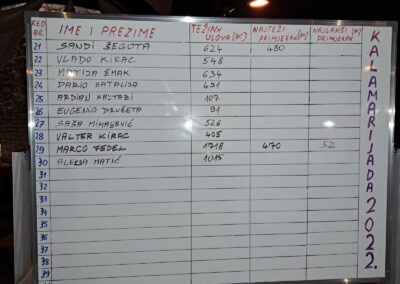 RED. BR. IME I PREZIME TEŽINA ULOVA [gr] NAJTEŽI PRIMJERAK [gr] NAJLAKŠI [gr] PRIMJERAK
21 SANDI ŠEGOTA 624 480
22 VLADO KIRAC 548
23 MATIJA ŽMAK 634
24 DARIO BATALIJA 491
25 ARDIAN 107
26 EUGENIO DRUŠETA 91
27 SAŠA MIHAJEVIĆ 526
28 VALTER KIRAC 405
29 MARCO FEDEL 1718 470 52
30 ALEKSA MATIĆ 1015
31
32
33
34
35
36
37
38
39
KALAMARIJADA 2022.